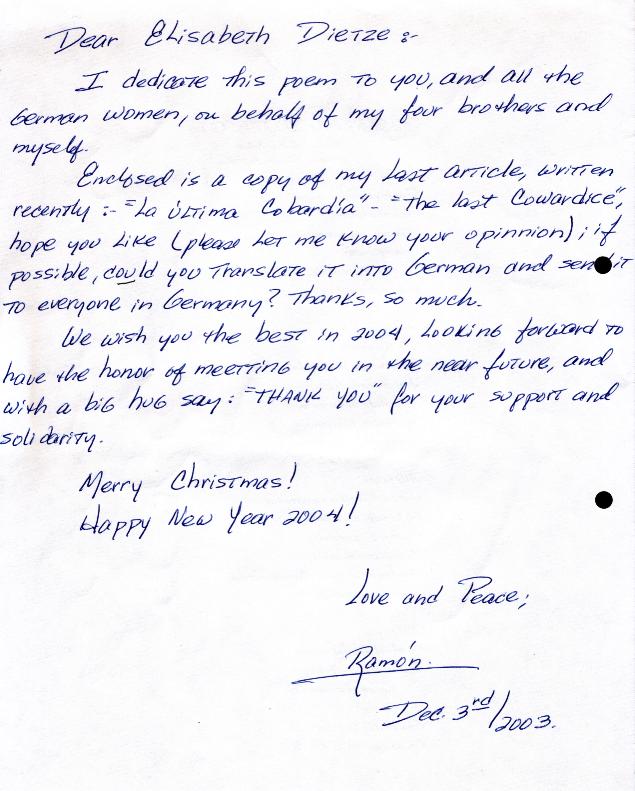 Dear Elisabeth Dietze :-
I dedicate this poem to you, and all the
German women, on behalf of my four brothers and
myself.
Enclosed is a copy of my last article, written
recently :- "La Última Cobardía" - "The last Cowardice",
hope you like (please let me know your opinnion); if
possible, could you translate it into German and send it
to everyone in Germany? Thanks, so much.
We wish you the best in 2004, looking forward to
have the honor of meetting you in the near future, and
with a big hug say: "THANK YOU" for your support and
solidarity.
Merry Christmas!
Happy New Year 2004!
Love and Peace;
Ramón.
Dec. 3rd/2003.